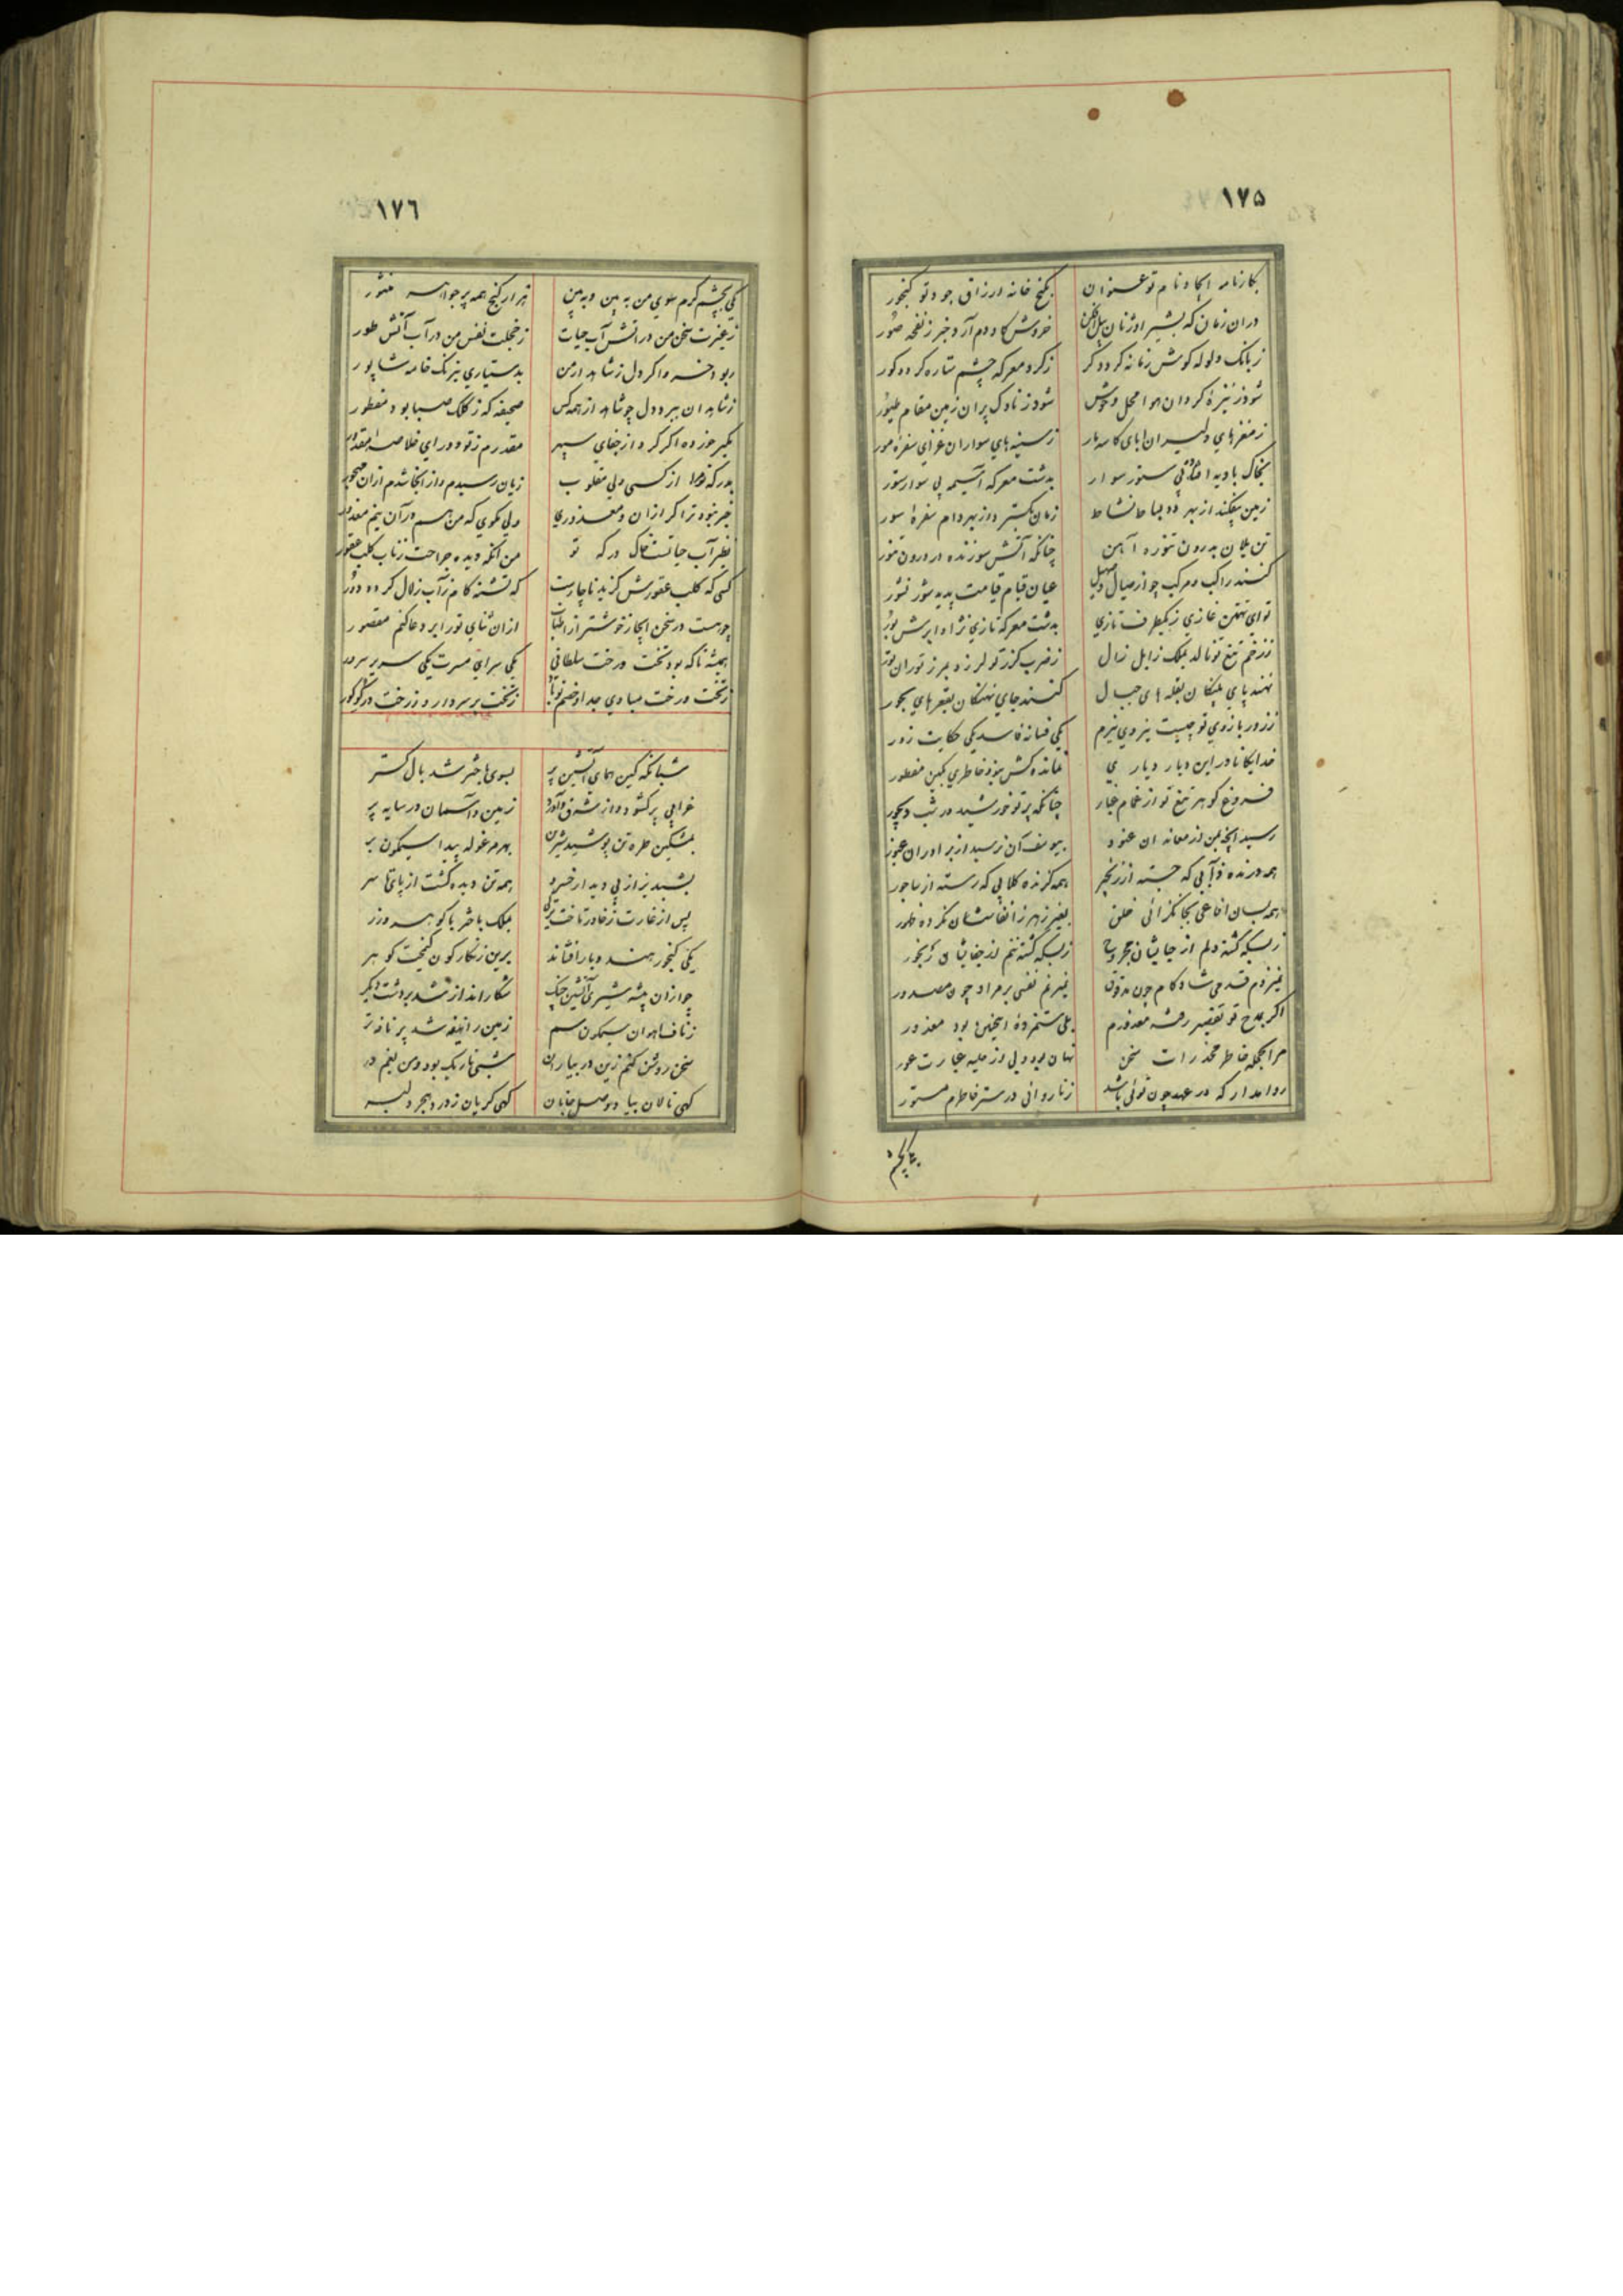 ١٧۵
بکارنامه ایجاد نام تو عنوان بکنج خانه ارزاق جود تو کنجور
دران زمان که بشیر اوژنان خروش کاودم آرد خبر ز نفخه صور
ز بانک ولوله کوش زمانه کردد کر ز کرد معرکه چشم ستاره کردد کور
شود ز نیزهٔ کردان هوا محل وحوش شود ز ناوک پران زمین مقام طیور
ز مغزهای دلیران ابای کاسه مار ز سینه های سواران غزای سفرهٔ مور
بخاک بادیه ستور سوار بدشت معرکه آسیمه پی سوار ستور
زمین بیفکند از بهر دد بساط نشاط زمان بکسترد از بهر دام سفرهٔ سور
تن یلان بدرون تنوره آهن چنانکه آتش سوزنده در درون تنور
کنند راکب و مرکب چو از صیال و صهیل عیان قیام قیامت پدید شور نشور
تو ای تهمتن غازی ز یکطرف تازی بدشت معرکه تازی نژاد ابرش بور
ز زخم تیغ تو نالد بملک زابل زال ز ضرب کرز تو لرزد بمرز توران تور
نهند پای پلنکان بقله های جبال کنند جای نهنکان بقعرهای بحور
ز زور بازوی تو چیست نیروی نیرم یکی فسانه فاسد یکی حکایت زور
خدایکانا در این دیار دیاری نمانده کش نبود خاطری بکین مفطور
فروغ کوهر تیغ تو از غمام غبار چنانکه پرتو خورشید در شب دیجور
رسید آنچه بمن از معاندان عنود بیوسف آن نرسید از برادران غیور
همه درنده ذآبی که جسته از زنجیر همه کزنده کلابی که رسته از ساجور
همه بسان افاعی بجانکزائی خلق بغیر زهر ز انفاسشان نکرده ظهور
ز بسکه کشته دلم از جفایشان مجروح ز بسکه کشته تنم از جفایشان رنجور
نمیزدم قدمی شادکام چون مدقوق نمیزنم نفسی بر مراد چون مصدور
اکر بمدح تو تقصیر رفته معذورم بلی ستم زده اینچنین بود معذور
مرا بحجله خاطر مخدرات سخن نهان بود ولی از حلیه عبارت عور
روا مدار که در عهد چون توئی باشد ز ناروائی در ستر خاطرم مستور
١٧٦
یکی بچشم کرم سوی من به بین و به بین هزار کنج همه پر جواهر منثور
ز غیرت سخن من در آتش آب حیات ز خجلت نفس من در آب آتش طور
ربود خسرو اکر دل ز شاهد ارمن بدستیاری نیرنک خامه شاپور
ز شاهدان ببرد دل چو شاهد از همه کس صحیفه که ز کلک صبا بود مفطور
یکی خرده اکر کرد از جفای سپهر مقدرم ز تو دور ای خلاصه مقدور
بدرکه از کسی ولی مقلوب زیان رسیدم و از انجا شدم ازان مهجور
خبر نبود ترا کر ازان و معذوری ولی مکوی که من هم در آن نیم معذور
نظیر آب حیاتست خاک درکه تو من آنکه دیده جراحت ز ناب کلب عقور
کسی که کلب عقورش کزید ناچارست که تشنه کام ز آب زلال کردد دور
چو هست در سخن ایجاز خوشتر از اطناب ازان ثنای تو را بر دعا کنم مقصور
همیشه تا که بود تخت و رخت سلطانی یکی سرای مسرت یکی سریر سرور
ز تخت و رخت مبادی جدا و خصم تو باد ز تخت بر سر دار و ز رخت در کو کور
شبانکه کین همای آتشین پر بسوی باختر شد بال کستر
غرابی پر کشود و از شرق زمین و آسمان در سایه پر
بمشکین طره تن پوشید شیرین بهر مرغوله پیدا سیمکون بر
بشبدیز از پی دیدار خسرو همه تن دیده کشت از پای تا سر
پس از غارت ز خاور تاخت بملک باختر با کوهر و زر
یکی کنجور هندو بار افشاند برین زنکارکون کنجینه کوهر
چو ازان بیشه شیری آتشین چنک شکارانداز شد بر دشت دیکر
ز ناف آهوان سیمکون سم زمین را نیفه شد پر نافه تر
سخن روشن کنم زین در بیاران شبی تاریک بود و من بغم در
کهی نالان بیاد وصل جانان کهی کریان ز درد هجر دلبر